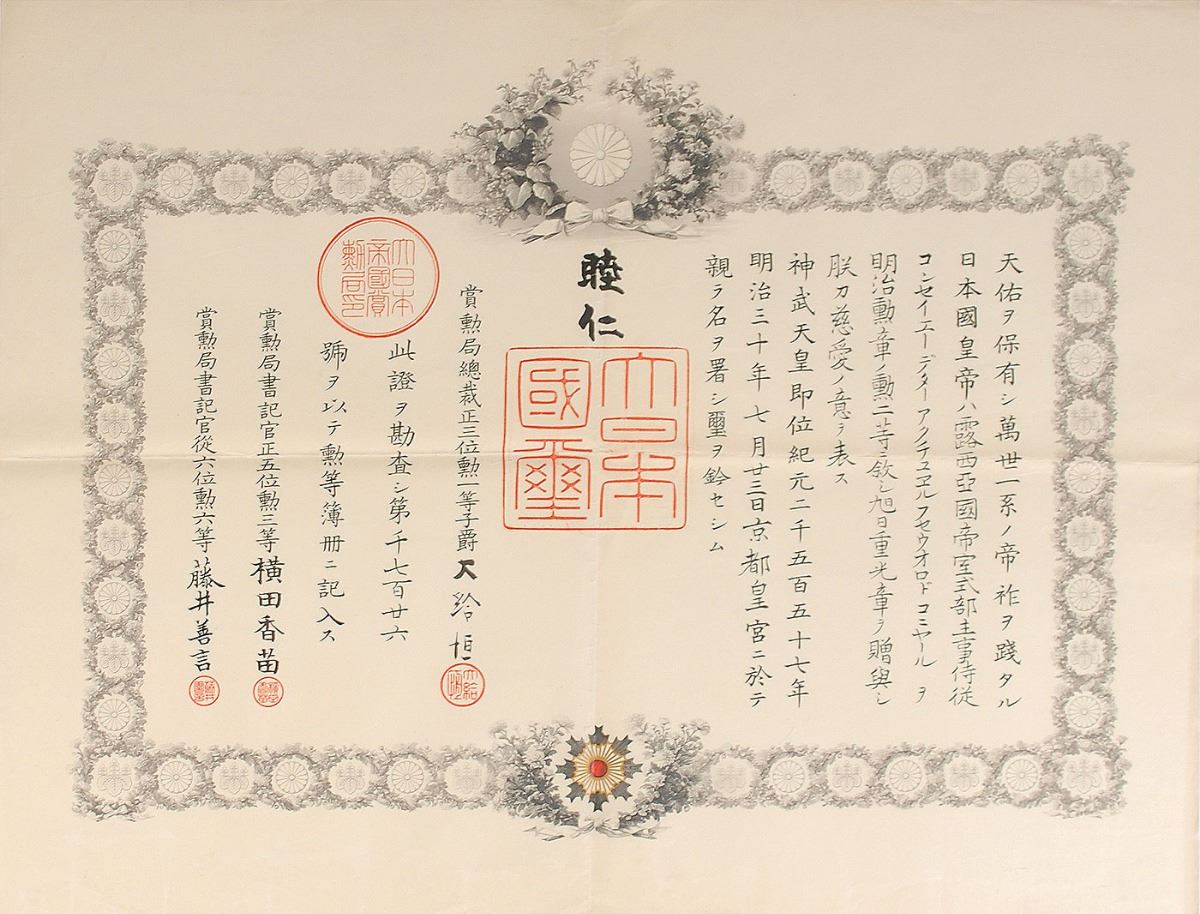 天佑ヲ保有シ萬世一系ノ帝祚ヲ踐タル
日本國皇帝ハ露西亞國帝室式部主事侍從
コンセイエーデターアクチユヱルフセウオロドコミヤール ヲ
明治勳章ノ勳二等ニ敘シ旭日重光章ヲ贈與シ
朕カ慈愛ノ意ヲ表ス
神武天皇即位紀元二千五百五十七年
明治三十年七月廿三日京都皇宮ニ於テ
親ラ名ヲ署シ璽ヲ鈐セシム
睦仁
大日本國璽
賞勳局總裁正三位勳一等子爵大給恒
大給恒
此證ヲ勘査シ第千七百廿六
號ヲ以テ勳等簿册ニ記入ス
大日本帝國賞勳局印
賞勳局書記官正五位勳三等橫田香苗
賞勳局書記官從六位勳六等藤井善言